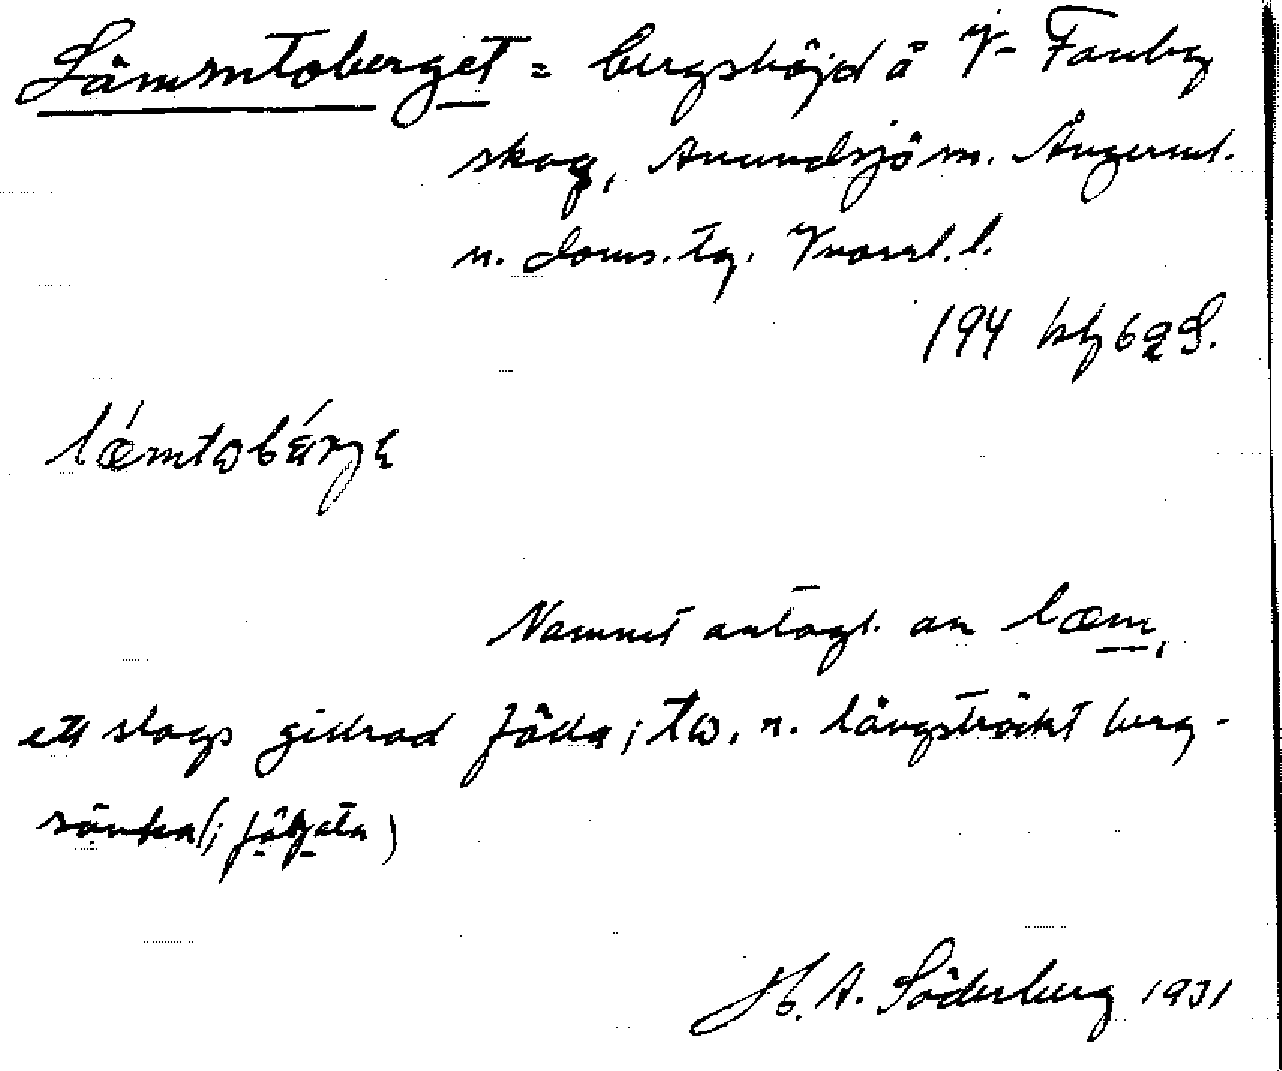 Lämmtoberget = bergshöjd å V Fanby
skog, Anundsjö sn. Ångerml.
n. doms. tg. Vnorrl. l.
194 kbf 62 S.
lǽmtobǽrje
Namnet antagl. av læm,
ett slags gillrad fälla; to, n. långsträckt berg-
sänka
H. A. Söderberg 1931